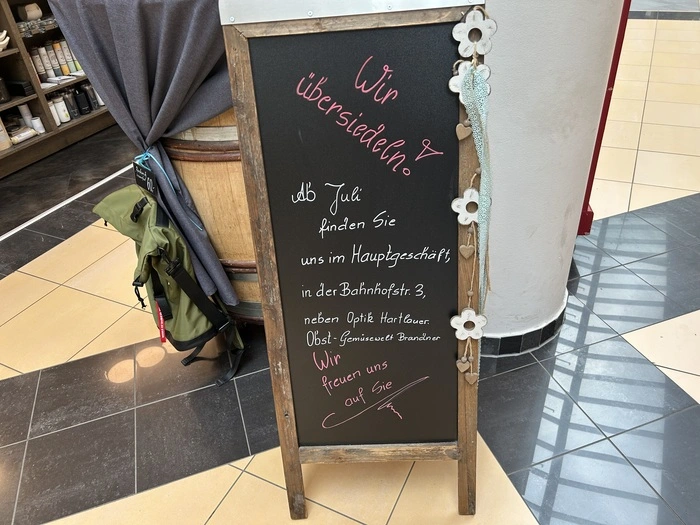 Wir
übersiedeln!
Ab Juli
finden Sie
uns im Hauptgeschäft,
in der Bahnhofstr. 3,
neben Optik Hartlauer.
Obst-Gemüsewelt Brandner
Wir
freuen uns
auf Sie